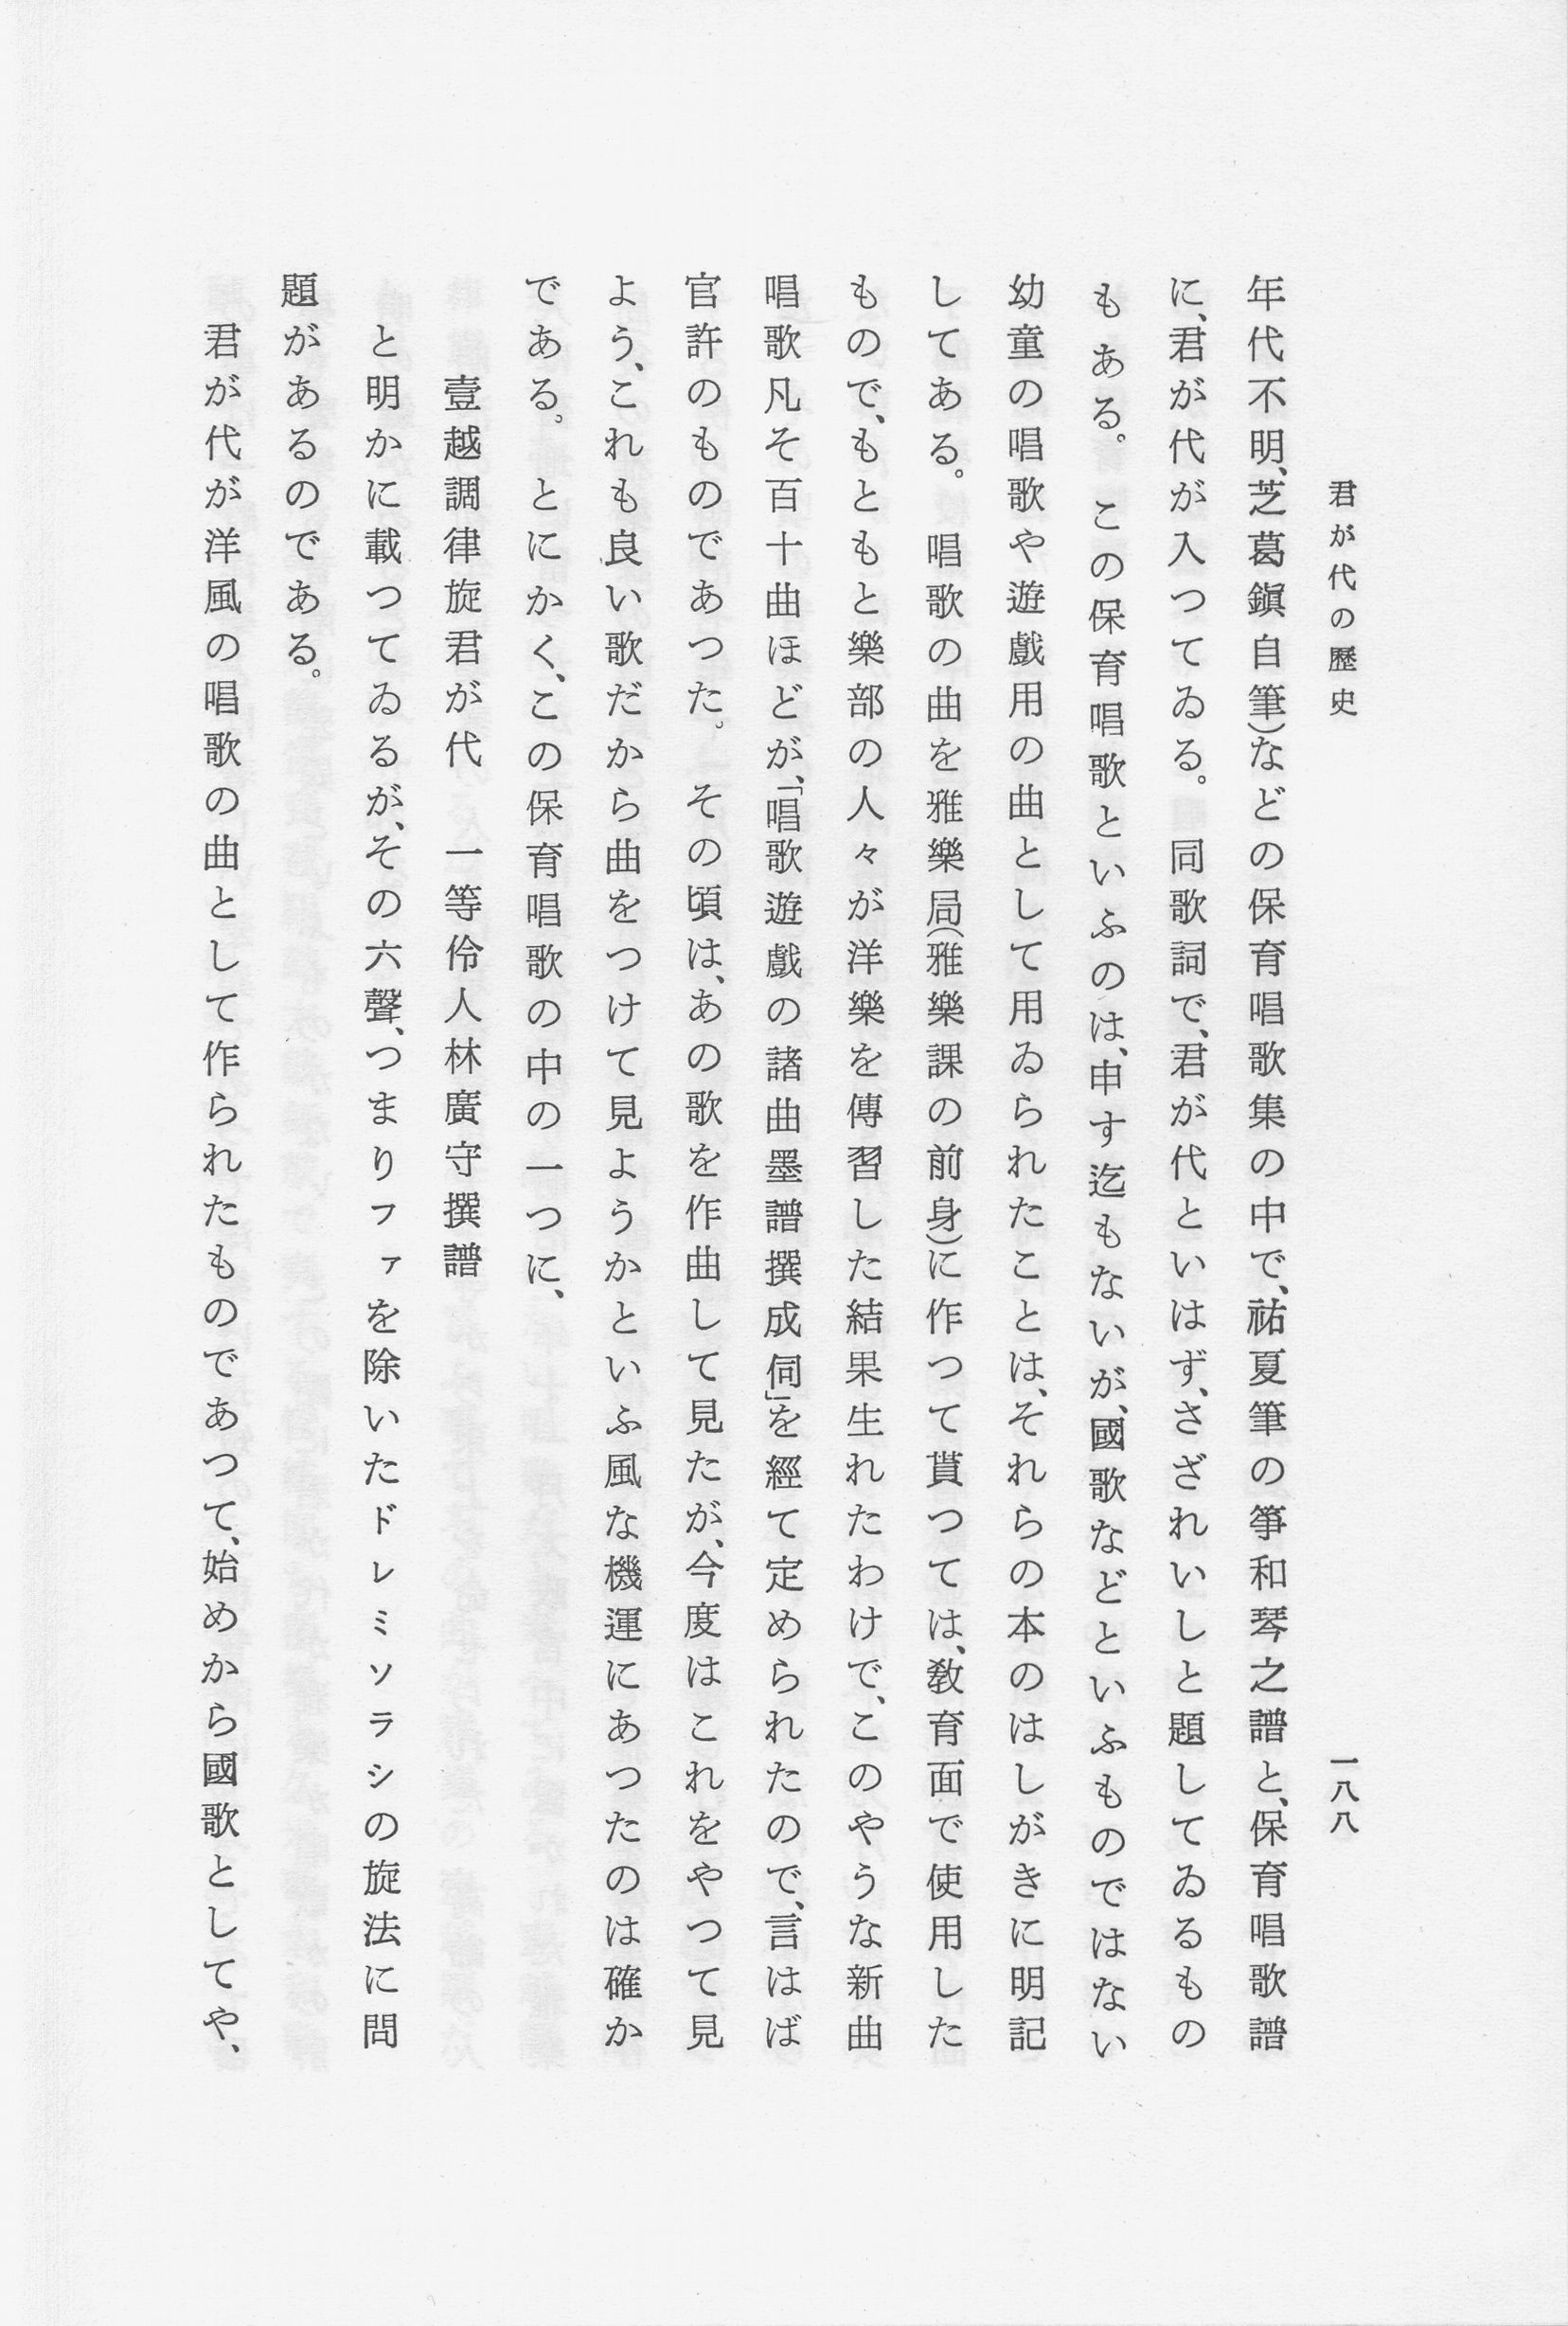 君が代の歷史
一八八
年代不明、芝葛鎭自筆)などの保育唱歌集の中で、祐夏筆の箏和琴之譜と、保育唱歌譜
に、君が代が入つてゐる。同歌詞で、君が代といはず、さざれいしと題してゐるもの
もある。この保育唱歌といふのは、申す迄もないが、國歌などといふものではない
幼童の唱歌や遊戲用の曲として用ゐられたことは、それらの本のはしがきに明記
してある。唱歌の曲を雅樂局(雅樂課の前身)に作つて貰つては、敎育面で使用した
もので、もともと樂部の人々が洋樂を傳習した結果生れたわけで、このやうな新曲
唱歌凡そ百十曲ほどが、「唱歌遊戲の諸曲墨譜撰成伺」を經て定められたので、言はば
官許のものであつた。その頃は、あの歌を作曲して見たが、今度はこれをやつて見
よう、これも良い歌だから曲をつけて見ようかといふ風な機運にあつたのは確か
である。とにかく、この保育唱歌の中の一つに、
壹越調律旋君が代　一等伶人林廣守撰譜
と明かに載つてゐるが、その六聲、つまりファを除いたドレミソラシの旋法に問
題があるのである。
君が代が洋風の唱歌の曲として作られたものであつて、始めから國歌としてや、